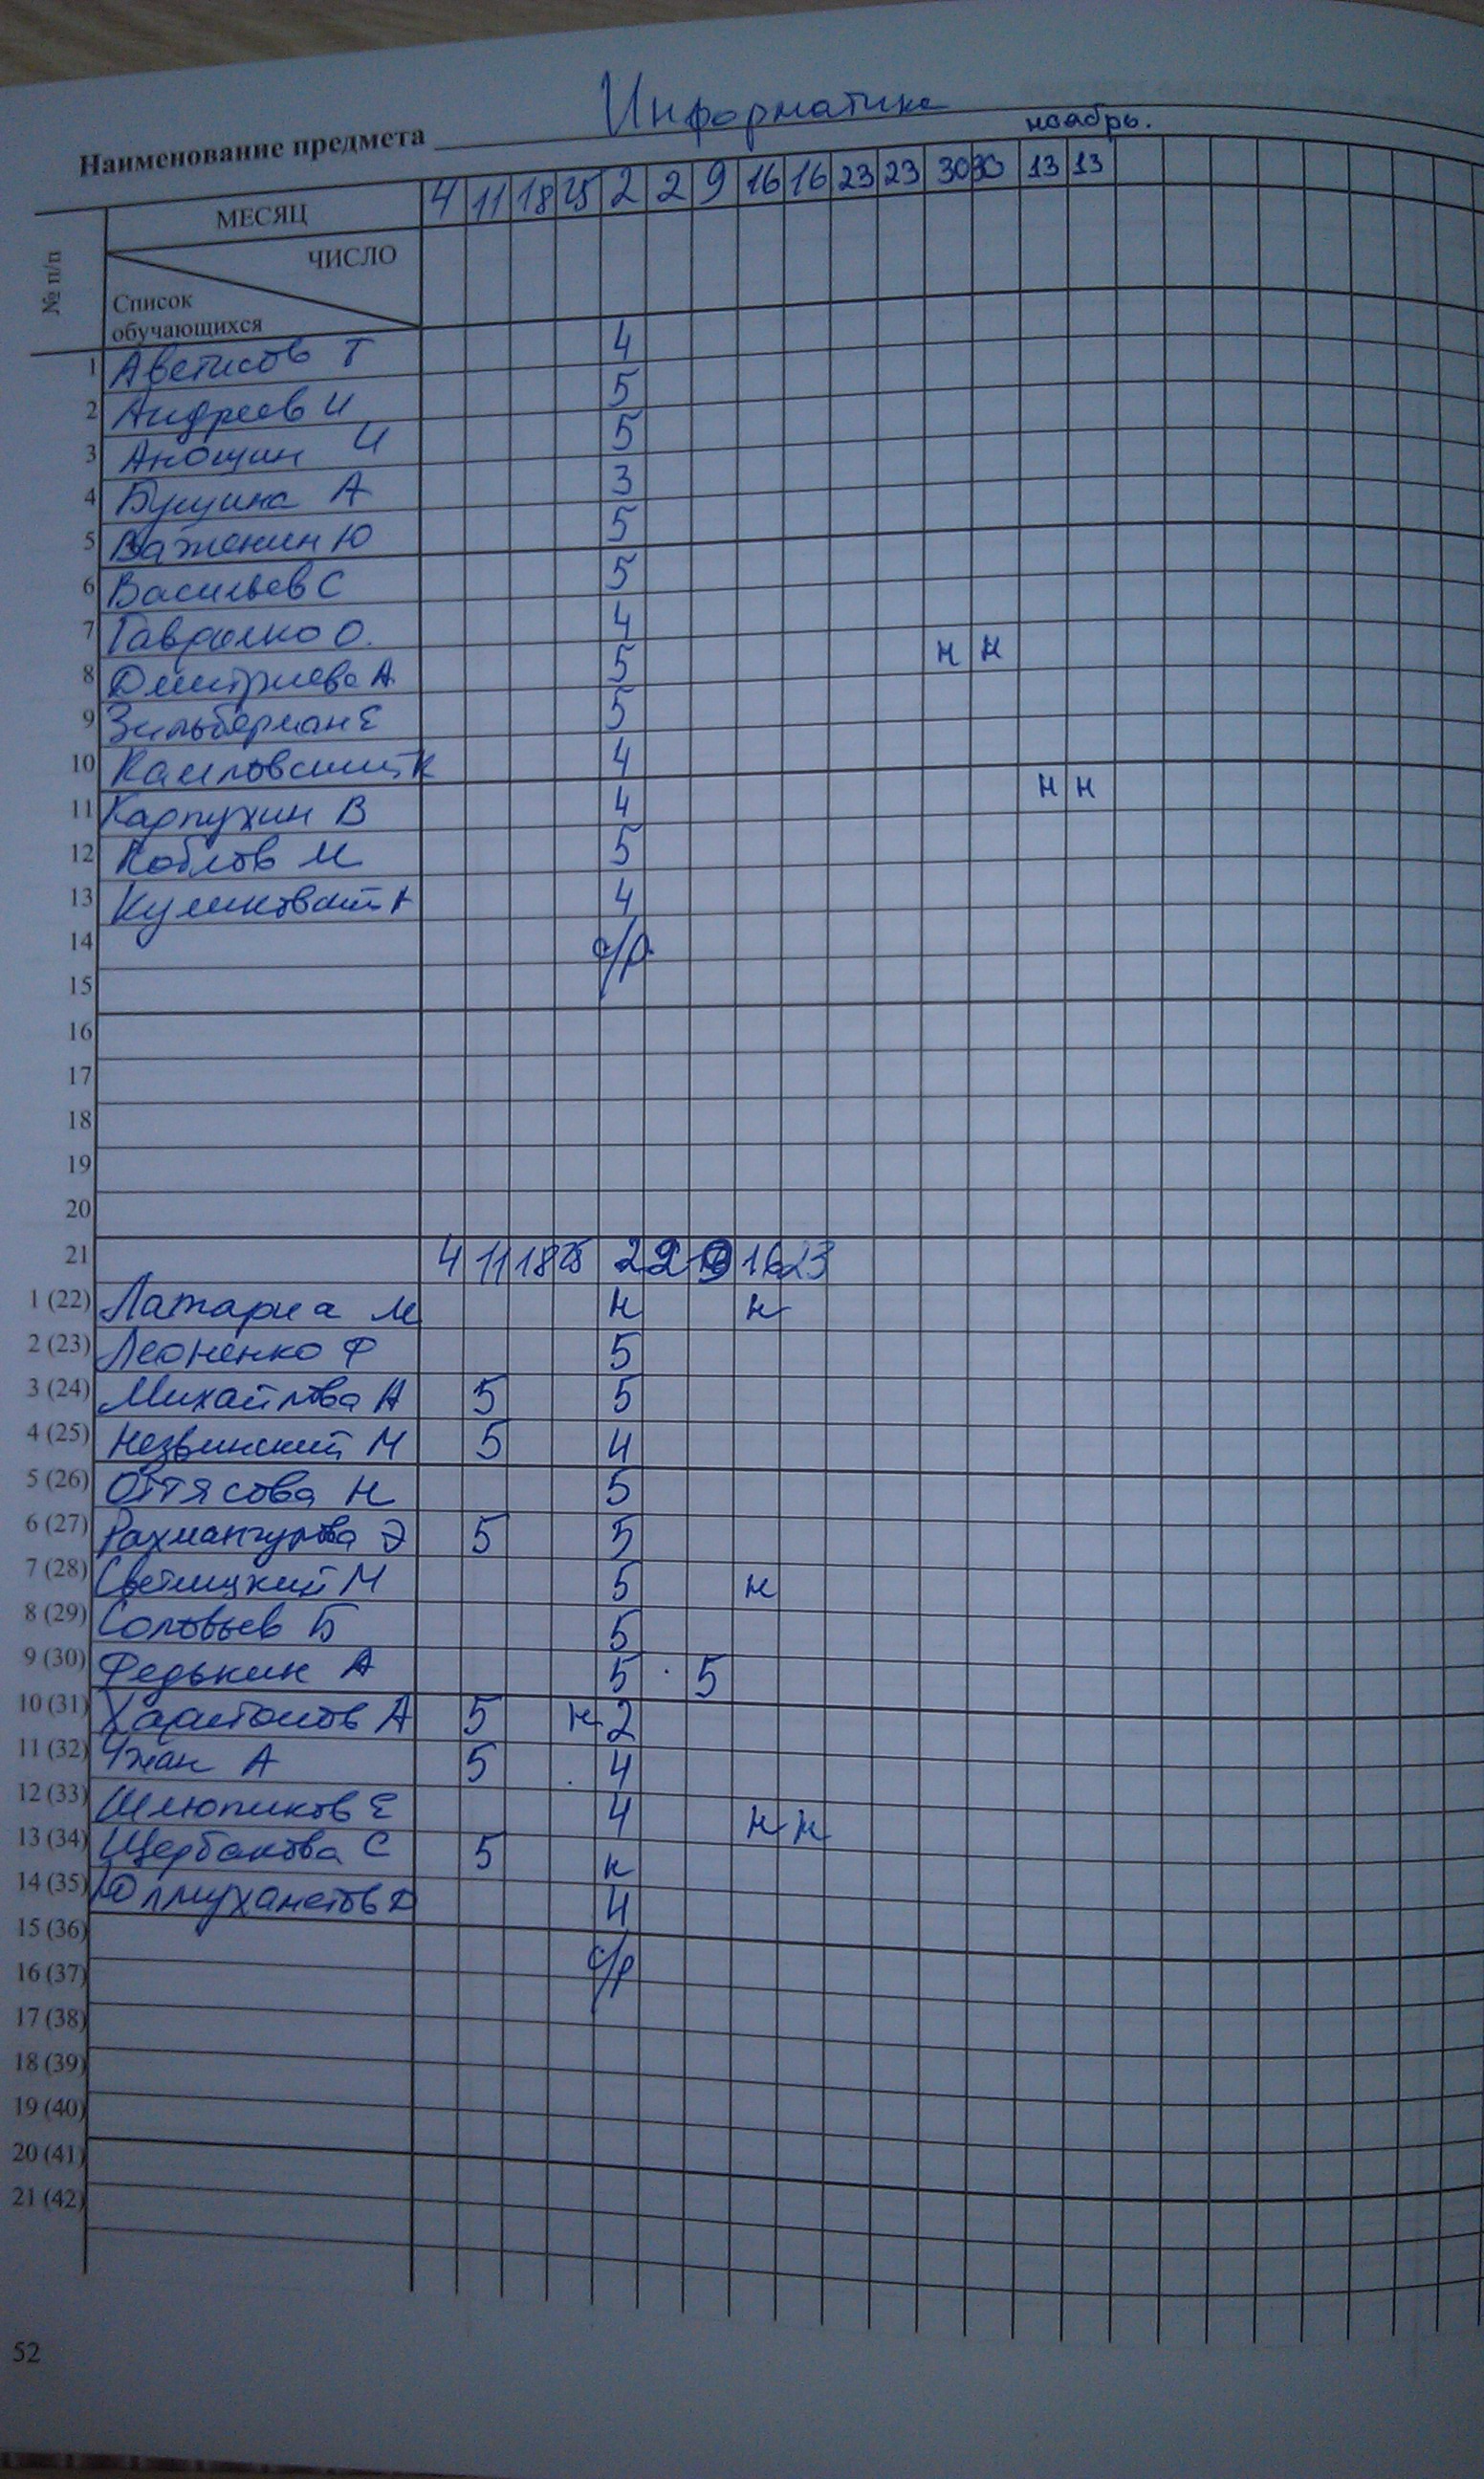 Наименование предмета Информатика
ноябрь.
№ п/п МЕСЯЦ 4 11 18 25 2 2 9 16 16 23 23 30 30 13 13
ЧИСЛО
Список
обучающихся
1 Аветисов Т 4
2 Андреев И 5
3 Анощин И 5
4 А 3
5 Важенин Ю 5
6 Васильев С 5
7 Гаврилко О. 4
8 Дмитриева А 5 н н
9 Зильберман Е 5
10 К 4
11 Карпухин В 4 н н
12 Коблов М 5
13 А 4
14 с/р
15
16
17
18
19
20
21 4 11 18 25 2 2 9 16 23
1 (22) Латария М н н
2 (23) Леоненко Ф 5
3 (24) Михайлова А 5 5
4 (25) Незвинский М 5 4
5 (26) Оттясова Н 5
6 (27) Рахмангулова Э 5 5
7 (28) Светлицкий М 5 н
8 (29) Соловьев Б 5
9 (30) Федькин А 5 5
10 (31) Харитонов А 5 н 2
11 (32) Чжан А 5 4
12 (33) Шлюпиков Е 4 н н
13 (34) Щербакова С 5 н
14 (35) Юлмухаметов Д 4
15 (36) с/р
16 (37)
17 (38)
18 (39)
19 (40)
20 (41)
21 (42)
52